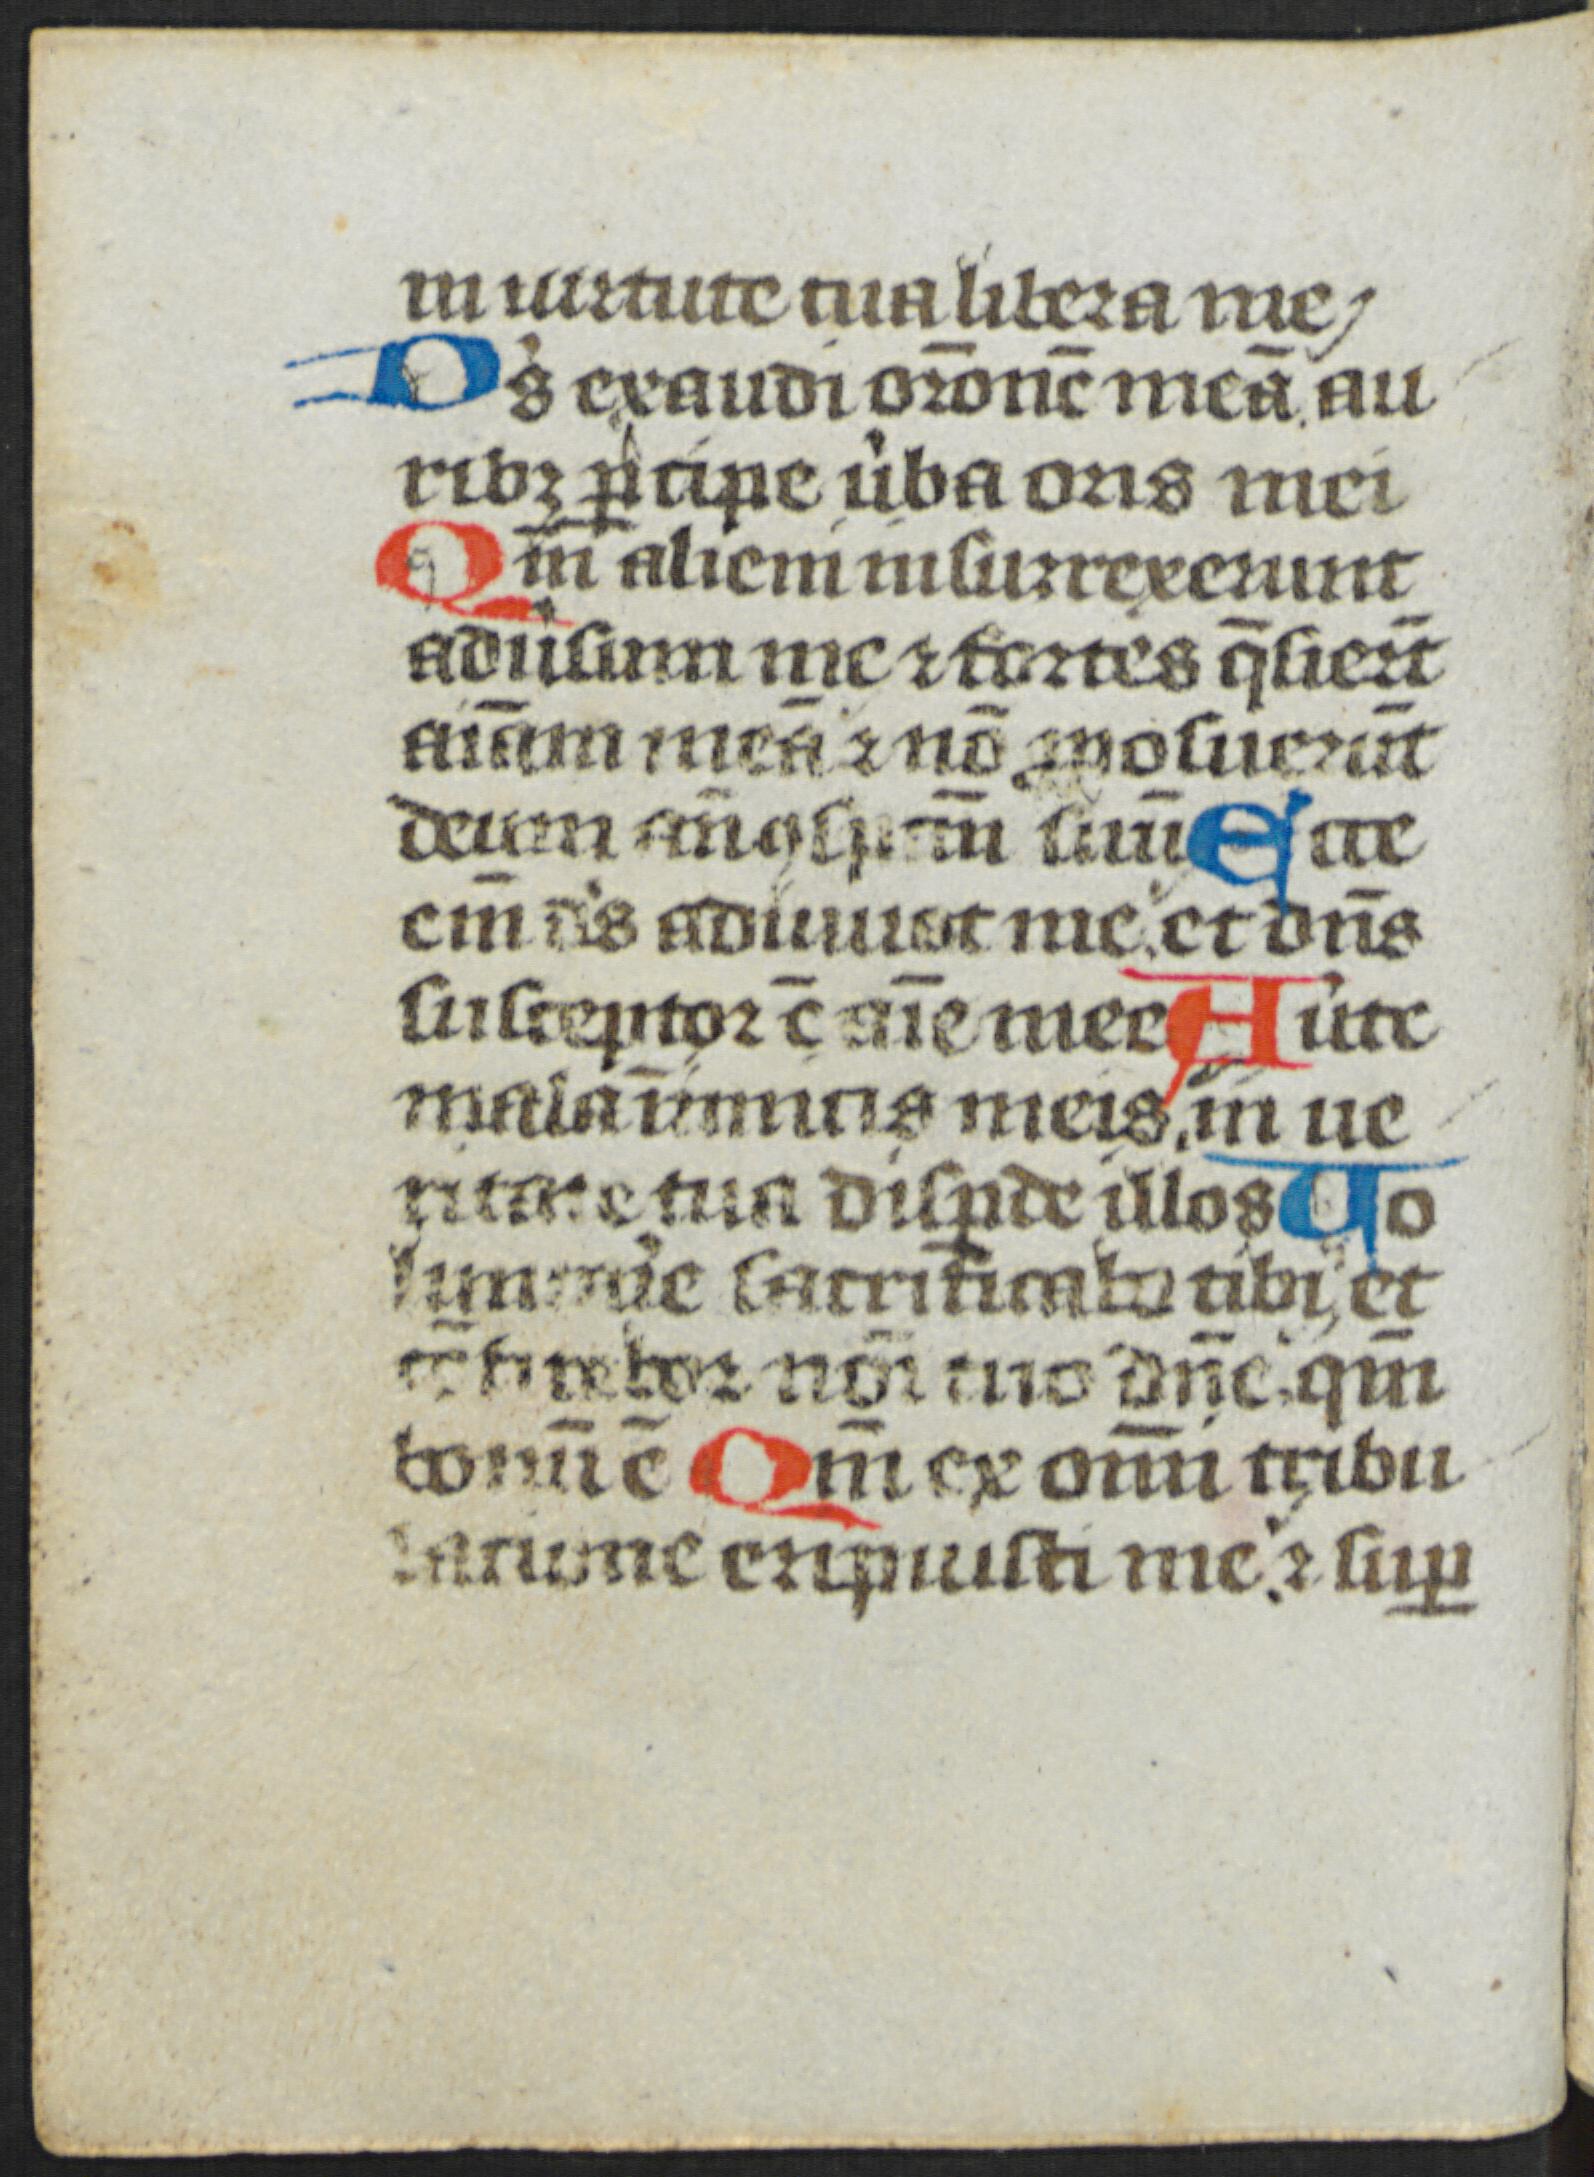 in uirtute tua libera me
Ds exaudi oronē meā. au
ribꝫ ꝑcipe uba oris mei
Qm̄ alieni insurrexerunt
aduisum me ⁊ fortes q̄sierūt
aīam meā ⁊ nō ꝓposuerūt
deum an̄ suū Ecce
em̄ ds adiuuat me. et dn̄s
susceptor ē aīe mee Aute
mala īnimicis meis, in ue
ritate tua disꝑde illos Uo
sacrificabo tibi, et
cōfitebor noī tuo dn̄e. qm̄
bonū ē Qm̄ ex om̄i tribu
latione eripuisti me. ⁊ suꝑ